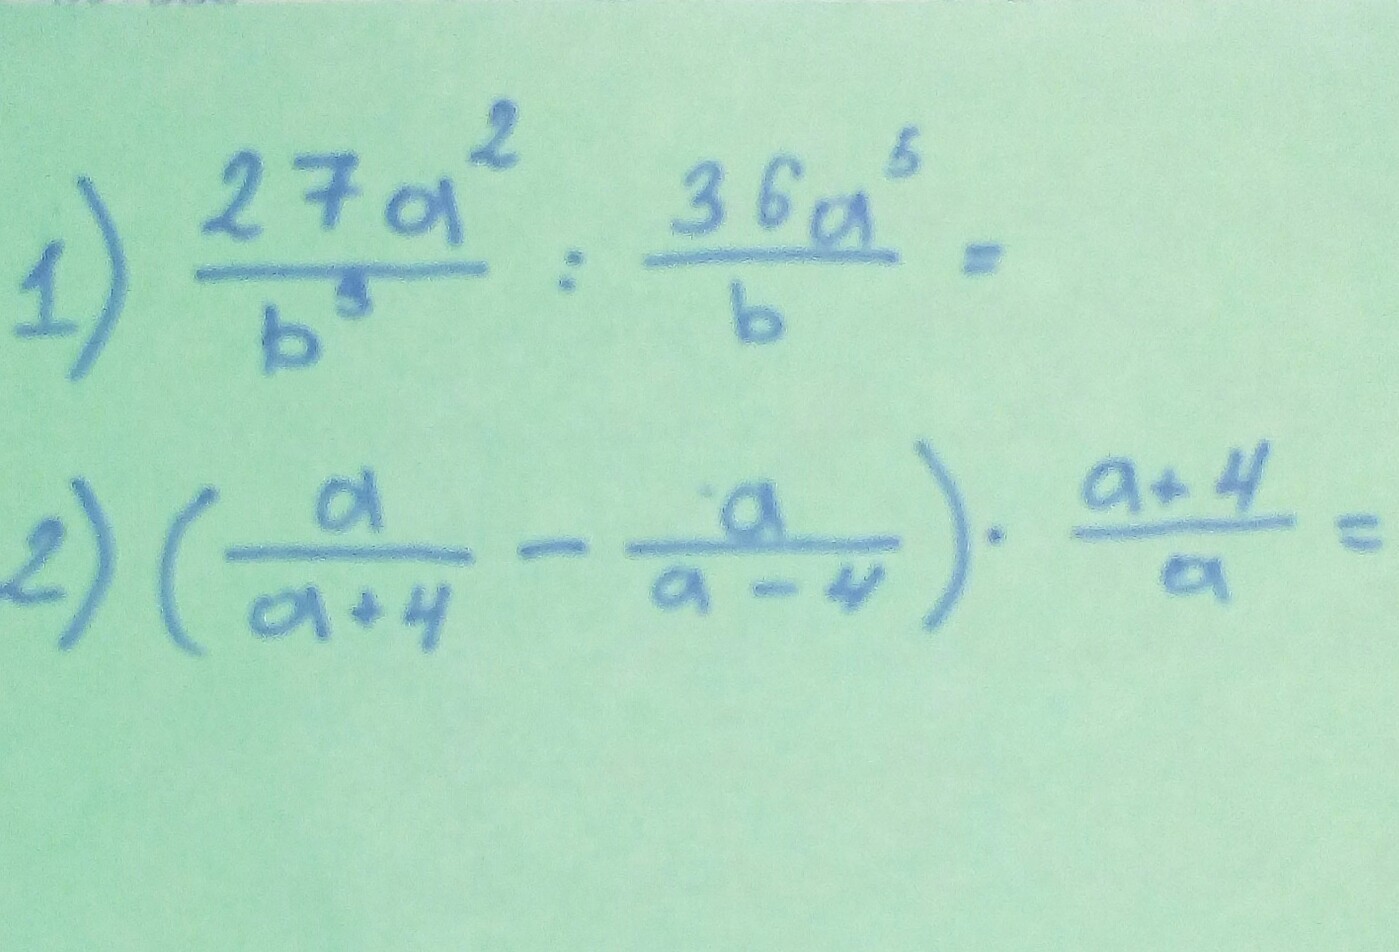 1) 27a² / b³ : 36a⁵ / b =
2) (a / a+4 − a / a−4) · a+4 / a =